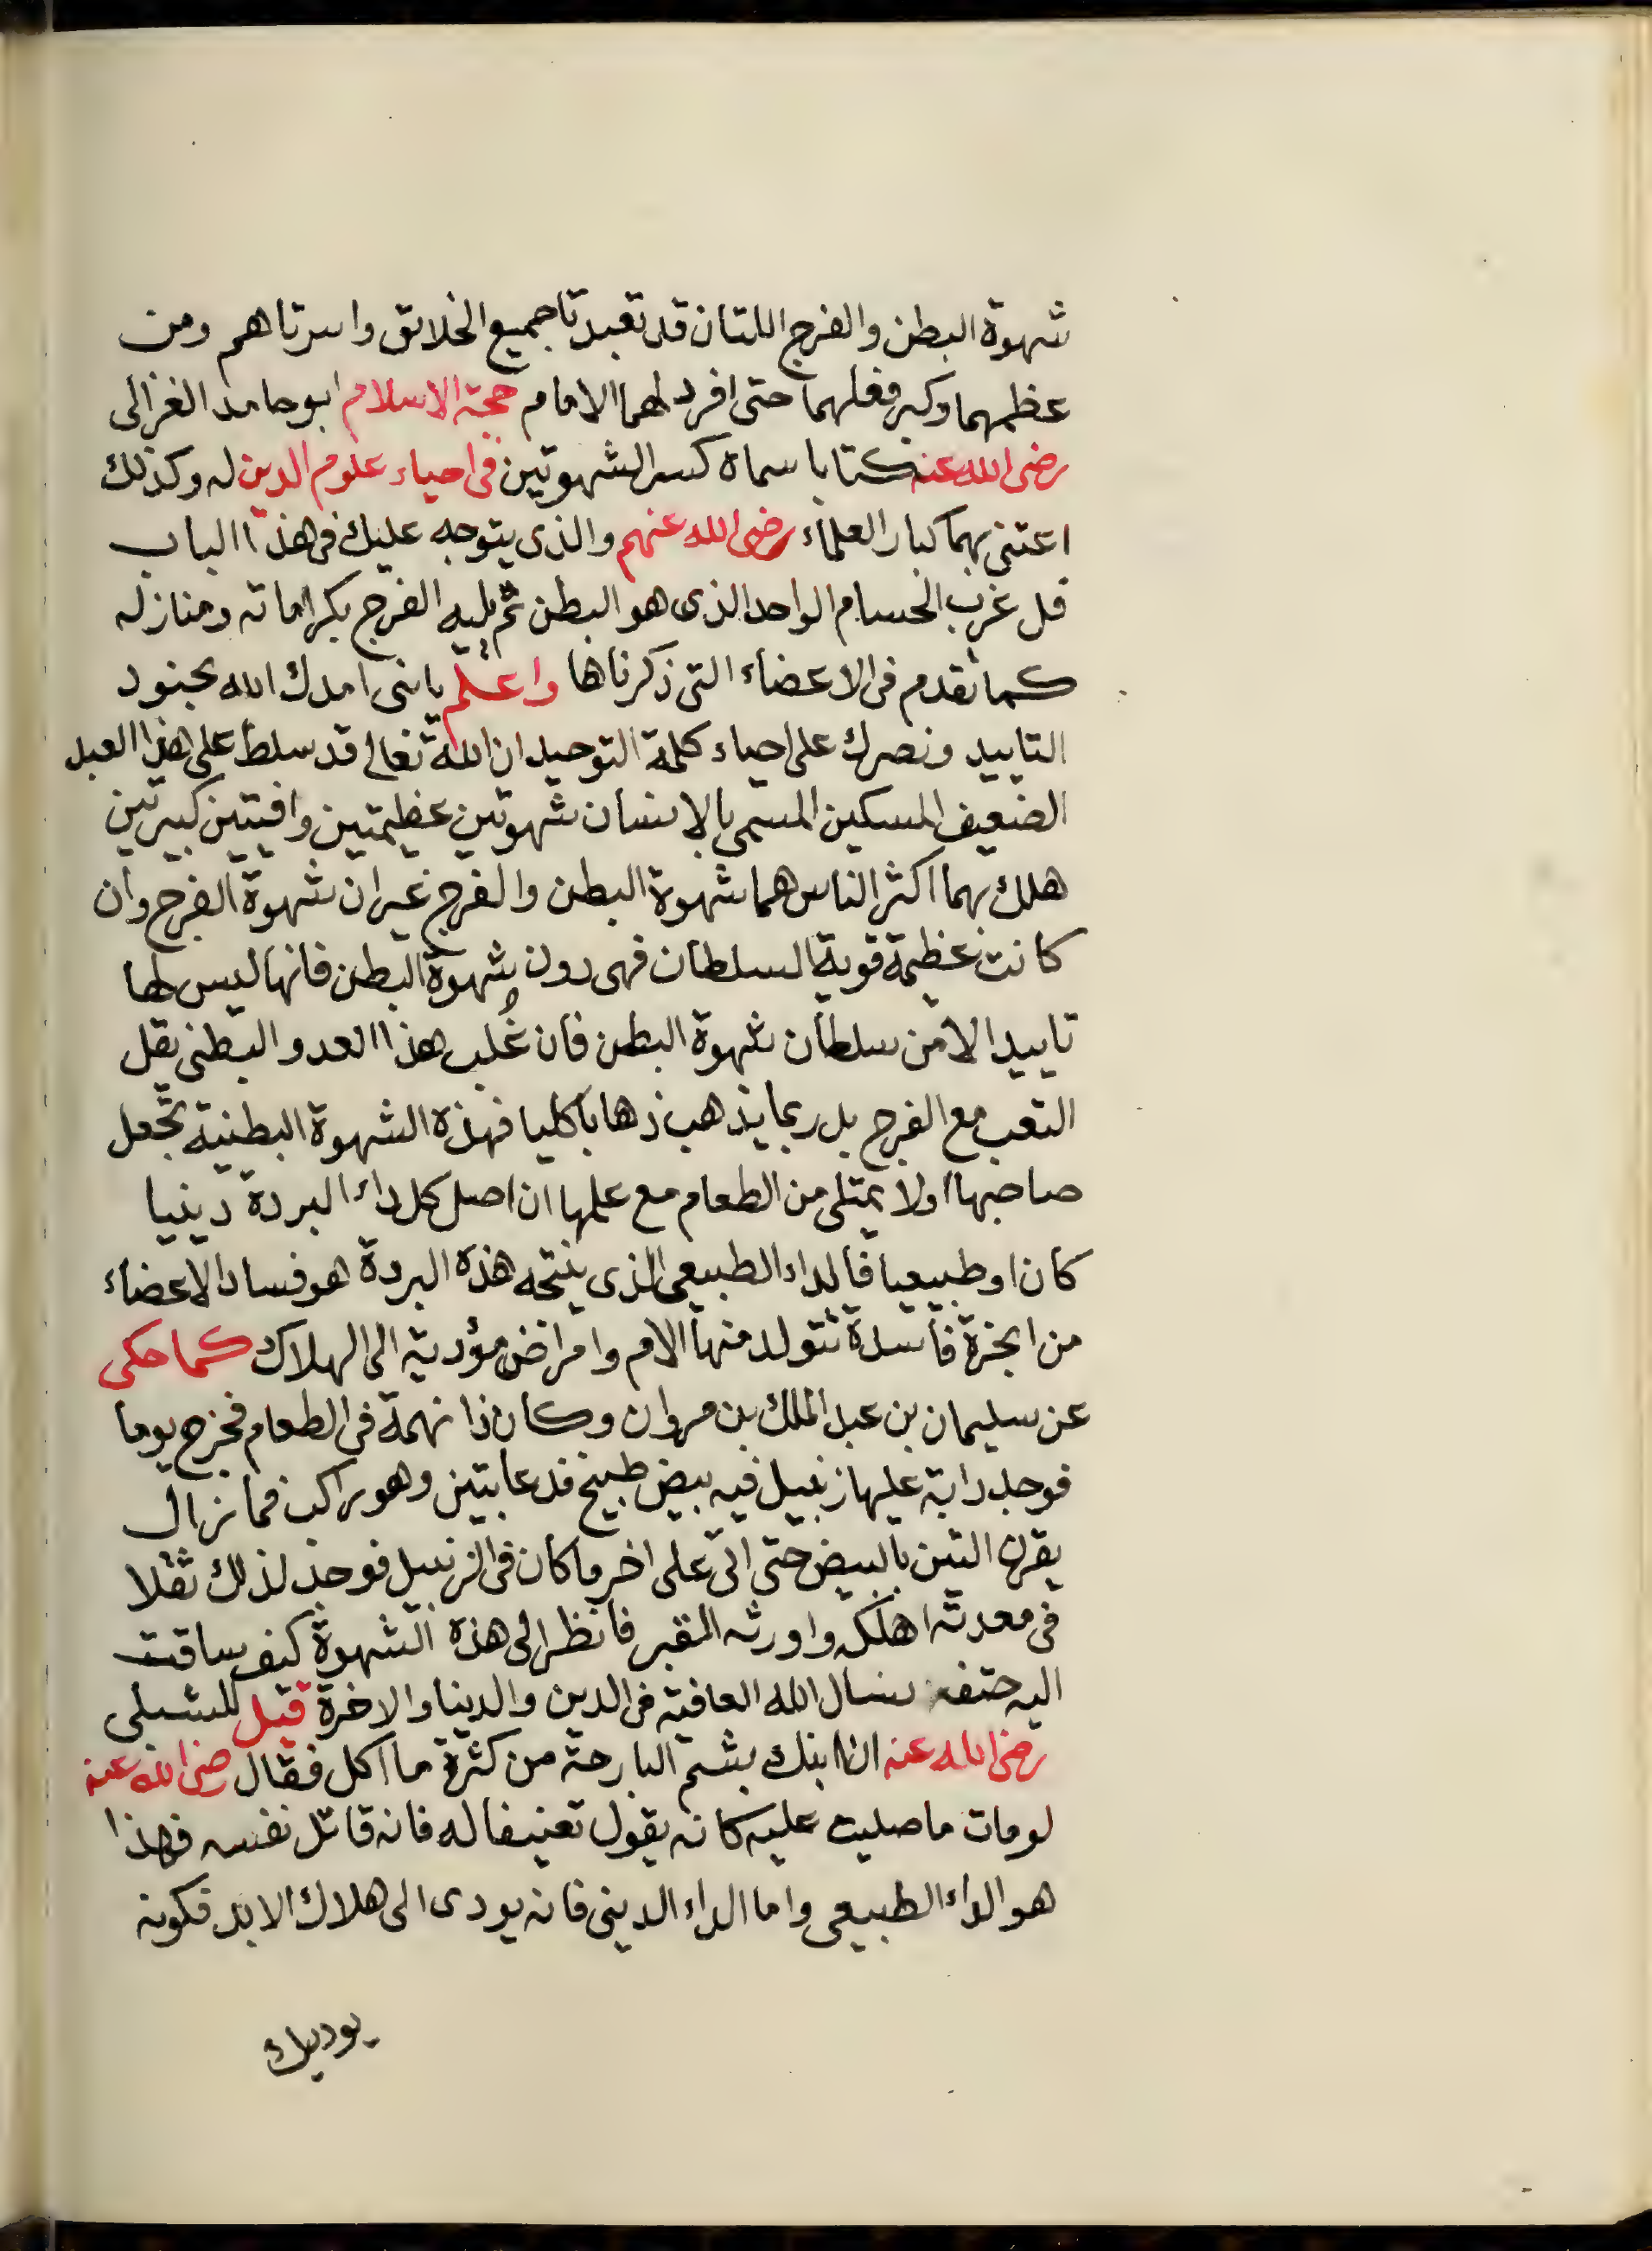 شهوة البطن والفرج اللتان قد تعبدتا جميع الخلائق واسرتاهم ومن
عظمهما وكبر فعلهما حتى افرد لهما الامام حجة الاسلام ابو حامد الغزالى
رضى الله عنه كتابا سماه كسر الشهوتين فى احياء علوم الدين له وكذلك
اعتنى بهما كبار العلماء رضى الله عنهم والذى يتوجه عليك فى هذا الباب
فل غرب الحسام الواحد الذى هو البطن ثم يليه الفرج بكراماته ومنازله
كما تقدم فى الاعضاء التى ذكرناها واعلم يابنى امدك الله بجنود
التاييد ونصرك على احياء كلمة التوحيد ان الله تعالى قد سلط على هذا العبد
الضعيف المسكين المسمى بالانسان شهوتين عظيمتين وافتين كبيرتين
هلك بهما اكثر الناس هما شهوة البطن والفرج غير ان شهوة الفرج وان
كانت عظيمة قوية السلطان فهى دون شهوة البطن فانها ليس لها
تاييد الا من سلطان شهوة البطن فان غُلب هذا العدو البطنى يقل
التعب مع الفرج بل ربما يذهب ذهابا كليا فهذه الشهوة البطنية تجعل
صاحبها اولا يمتلى من الطعام مع علمها ان اصل كل داء البردة دينيا
كان او طبيعيا فالداء الطبيعى الذى ينتجه هذه البردة هو فساد الاعضاء
من ابخرة فاسدة تتولد منها الام وامراض مؤدية الى الهلاك كما حكى
عن سليمان بن عبد الملك بن مروان وكان ذا نهمة فى الطعام فخرج يوما
فوجد دابة عليها زنبيل فيه بيض طبيخ فدعا بتين وهو راكب فما زال
يقرن التين بالبيض حتى اتى على اخر ما كان فى الزنبيل فوجد لذلك ثقلا
فى معدته اهلكه واورثه القبر فانظر الى هذه الشهوة كيف ساقت
اليه حتفه نسال الله العافية فى الدين والدينا والاخرة قيل للشبلى
رضى الله عنه ان ابنك بشم البارحة من كثرة ما اكل فقال رضى الله عنه
لو مات ما صليت عليه كانه يقول تعنيفا له فانه قاتل نفسه فهذا
هو الداء الطبيعى واما الداء الدينى فانه يودى الى هلاك الابد فكونه
يوديك